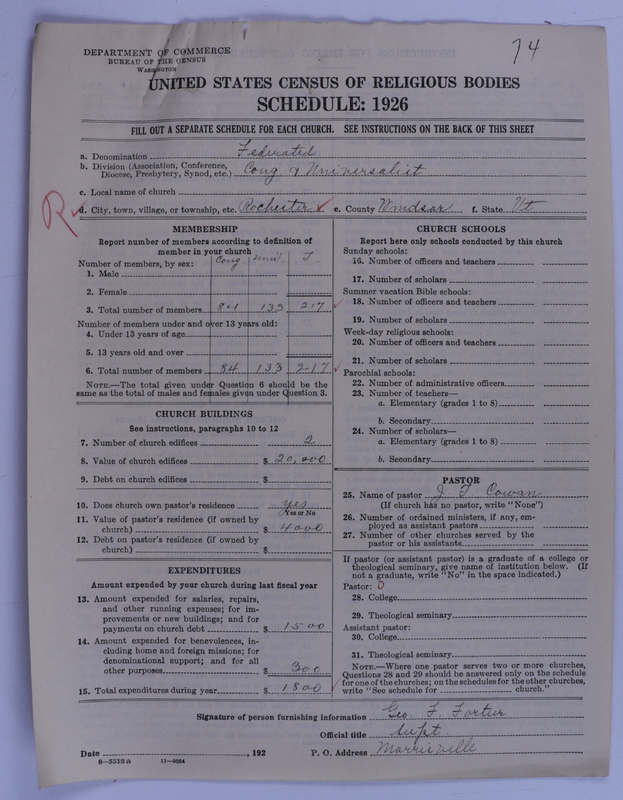 74
DEPARTMENT OF COMMERCE
BUREAU OF THE CENSUS
WASHINGTON
UNITED STATES CENSUS OF RELIGIOUS BODIES
SCHEDULE: 1926
FILL OUT A SEPARATE SCHEDULE FOR EACH CHURCH. SEE INSTRUCTIONS ON THE BACK OF THIS SHEET
a. Denomination Federated
b. Division (Association, Conference,
Diocese, Presbytery, Synod, etc.) Cong & Universalist
c. Local name of church
R
d. City, town, village, or township, etc. Rochester e. County Windsor f. State Vt
MEMBERSHIP
Report number of members according to definition of
member in your church
Number of members, by sex: Cong Univ T
1. Male
2. Female
3. Total number of members 84 133 217
Number of members under and over 13 years old:
4. Under 13 years of age
5. 13 years old and over
6. Total number of members 84 133 217
NOTE.—The total given under Question 6 should be the
same as the total of males and females given under Question 3.
CHURCH BUILDINGS
See instructions, paragraphs 10 to 12
7. Number of church edifices 2
8. Value of church edifices $ 20,000
9. Debt on church edifices $
10. Does church own pastor's residence yes
Yes or No
11. Value of pastor's residence (if owned by
church) $ 4000
12. Debt on pastor's residence (if owned by
church) $
EXPENDITURES
Amount expended by your church during last fiscal year
13. Amount expended for salaries, repairs,
and other running expenses; for im-
provements or new buildings; and for
payments on church debt $ 1500
14. Amount expended for benevolences, in-
cluding home and foreign missions; for
denominational support; and for all
other purposes $ 300
15. Total expenditures during year $ 1800
CHURCH SCHOOLS
Report here only schools conducted by this church
Sunday schools:
16. Number of officers and teachers
17. Number of scholars
Summer vacation Bible schools:
18. Number of officers and teachers
19. Number of scholars
Week-day religious schools:
20. Number of officers and teachers
21. Number of scholars
Parochial schools:
22. Number of administrative officers
23. Number of teachers—
a. Elementary (grades 1 to 8)
b. Secondary
24. Number of scholars—
a. Elementary (grades 1 to 8)
b. Secondary
PASTOR
25. Name of pastor J T Cowan
(If church has no pastor, write "None")
26. Number of ordained ministers, if any, em-
ployed as assistant pastors
27. Number of other churches served by the
pastor or his assistants
If pastor (or assistant pastor) is a graduate of a college or
theological seminary, give name of institution below. (If
not a graduate, write "No" in the space indicated.)
Pastor: 0
28. College
29. Theological seminary
Assistant pastor:
30. College
31. Theological seminary
NOTE.—Where one pastor serves two or more churches,
Questions 28 and 29 should be answered only on the schedule
for one of the churches; on the schedules for the other churches,
write "See schedule for church."
Signature of person furnishing information Geo F Fortier
Official title Supt
Date , 192 P. O. Address Morrisville
8-5318 a 11-9054